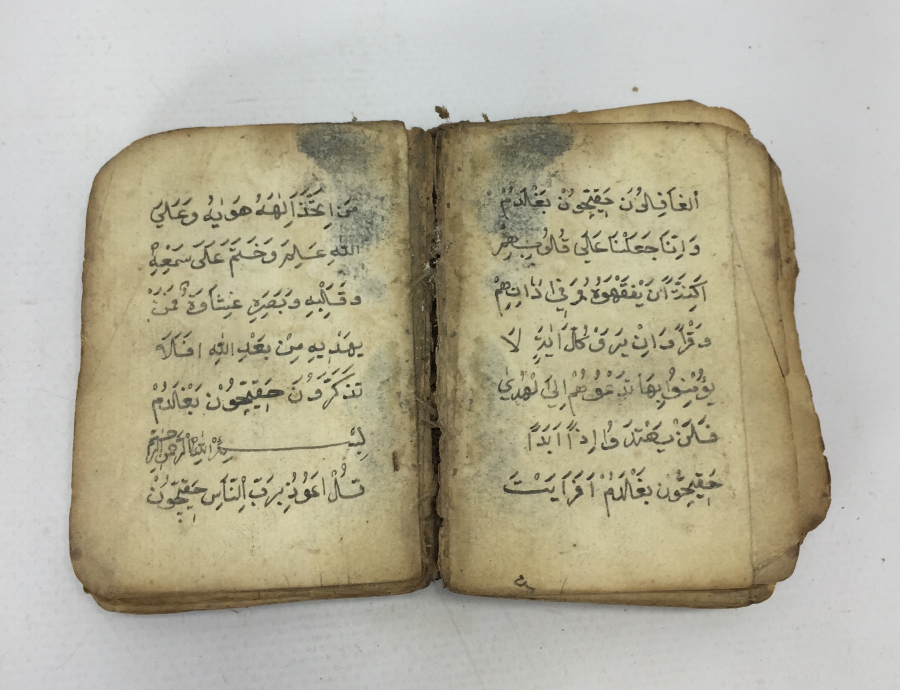 الغافِلُونَ حَقِيچُونْ بَغْلَادُمْ
وَاِنَّا جَعَلْنَا عَلٰي قُلُوبِهِمْ
اَكِنَّةً اَنْ يَفْقَهُوهُ وَفِي اٰذَانِهِمْ
وَقْرًا وَاِنْ يَرَوْ كُلَّ اٰيَةٍ لَا
يُؤْمِنُوا بِهَا تَدْعُوهُمْ اِلَي لْهُدٰي
فَلَنْ يَهْتَدُوا اِذًا اَبَدًا
حَقِيچُون بَغْلَادُمْ اَفَرَاَيْتَ
مَنِ اتَّخَذَ اِلٰهَهُ هَوٰيهُ وَعَلَي
اللّٰهِ عَلِمَ وَخَتَمَ عَلَى سَمْعِهِ
وَقَلْبِهِ وَبَصَرِهِ غِشَاوَةً فَمَنْ
يَهْدِيهِ مِنْ بَعْدِ اللّٰهِ افَلَا
تَذَكَّرُونَ حَقِيچُونْ بَغْلَادُمْ
بِسْمِ اللّٰهِ الرَّحْمٰنِ الرَّحِيمِ
قُلْ اَعُوذُ بِرَبِّ النَّاسِ حَقِيچُونْ